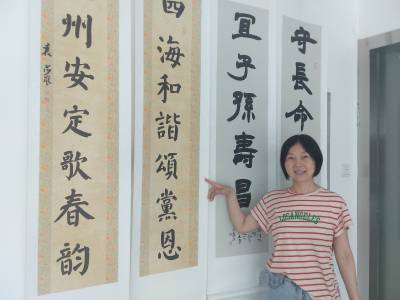 守長命
宜子孫壽昌
四海和諧頌黨恩
州安定歌春韵